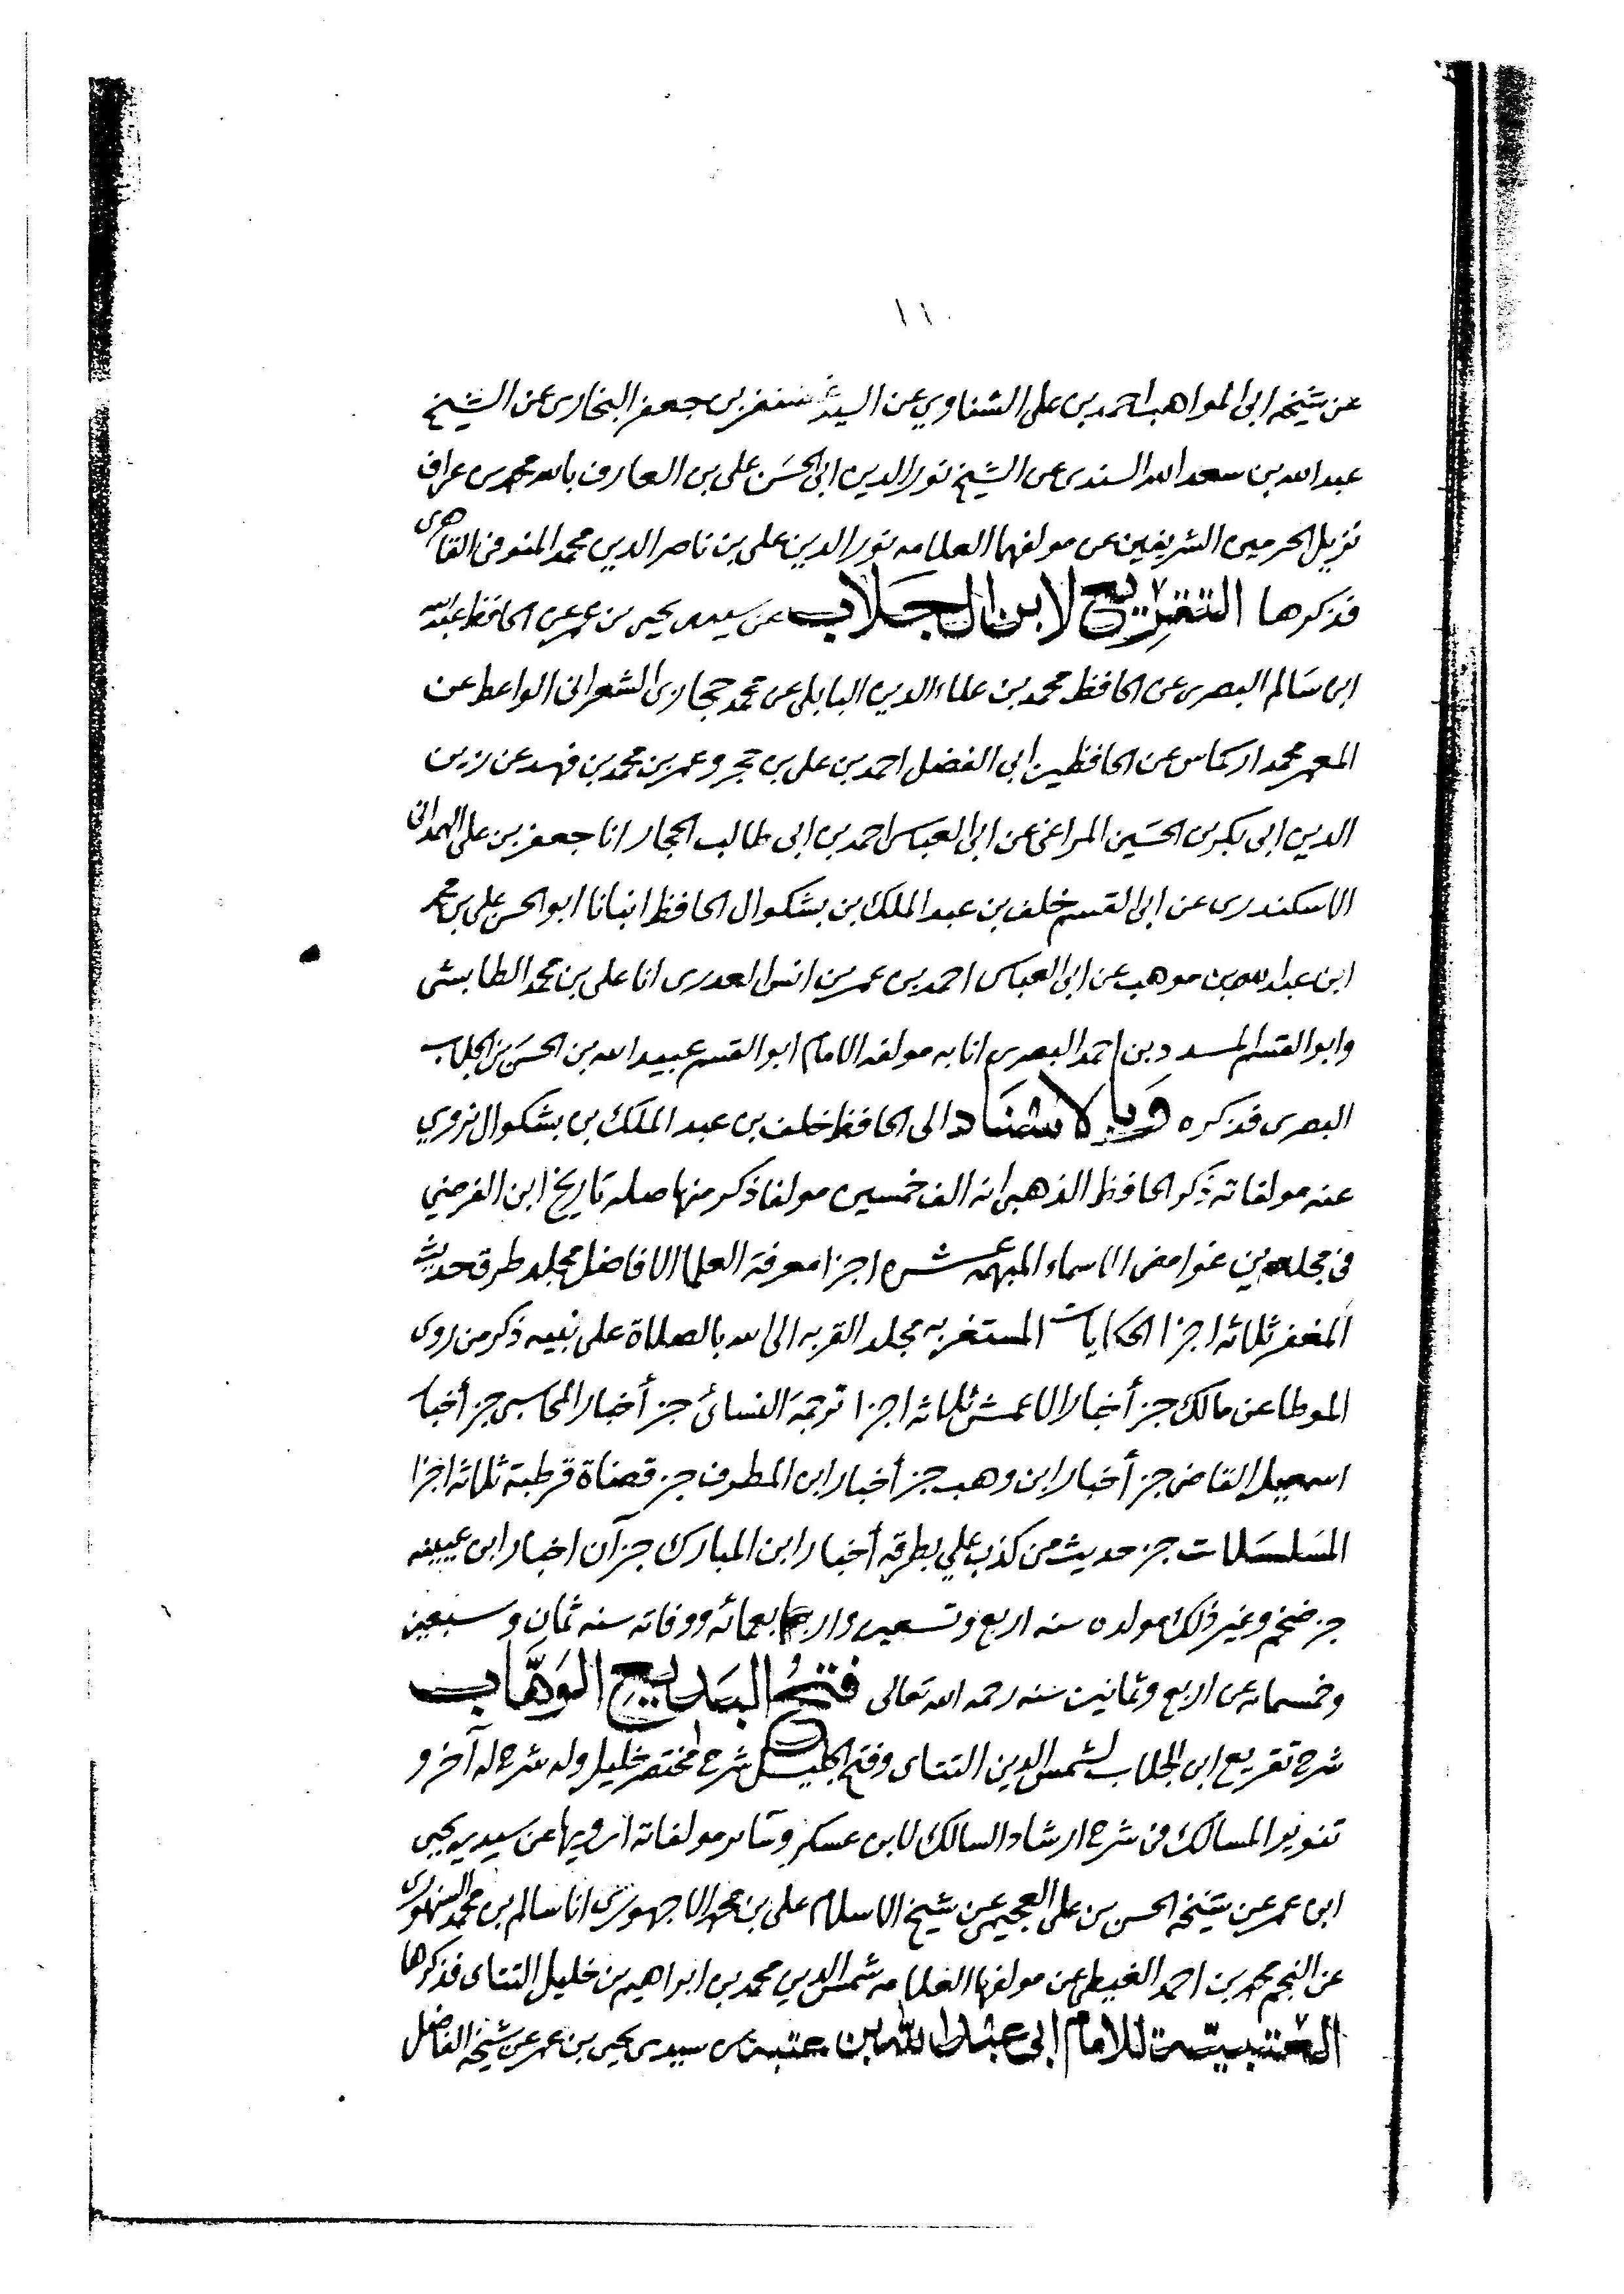 ١١
عن شيخه ابى المواهب احمد بن على الشناوي عن السيد غضنفر بن جعفر البخارى عن الشيخ
عبد الله بن سعد الله السندى عن الشيخ نور الدين ابى الحسَن على بن العارف بالله محمد بن عراف
نزيل الحرمين الشريفين عن مولفها العلامه نور الدين على بن ناصر الدين محمد المنوفى القاهرى
فذكرها التفريع لابن الجَلاب عن سيدى يحيى بن عمر عن الحافظ عبد الله
ابن سَالم البصرى عن الحافظ محمد بن علاء الدين البابلى عن محمد حجازى الشعرانى الواعظ عن
المعمر محمد اركماس عن الحافظين ابى الفضل احمد بن على بن حجر وعمر بن محمد بن فهد عن زين
الدين ابى بكر بن الحسَين المراغى عن ابى العباس احمد بن ابى طالب الحجار انا جعفر بن على الهمدانى
الاسكندرى عن ابى القسم خلف بن عبد الملك بن بشكوال الحافظ انبانا ابو الحسن على بن محمد
ابن عبد الله بن موهب عن ابى العباس احمد بن عمر بن انس العدرى انا على بن محمد الطابثى
وابو القسم المسدد بن احمد البصرى انا به مولفه الامام ابو القسم عبيد الله بن الحسَن بن الجلاب
البصرى فذكره وَبالاسْنَاد الى الحافظ خلف بن عبد الملك بن بشكوال نروي
عنه مولفاته ذكر الحافظ الذهبى انه الف خمسين مولفا ذكر منها صله تاريخ ابن الفرضي
فى مجلدين غوامض الاسماء المبهمه عشره اجزا معرفة العلما الافاضل مجلد طرق حديث
المغفر ثلاثه اجزا الحكايات المستغربه مجلد القربه الى الله بالصلاة على نبيه ذكر من روى
الموطا عن مالك جز أخبار الاعمش ثلاثه اجزا ترجمة النسائ جز أخبار المحاسبى جز أخبار
اسمعيل القاضى جز أخبار ابن وهب جز أخبار ابى المطرف جز قضاة قرطبة ثلاثه اجزا
المسَلسَلات جز حديث من كذب علي بطرقه أخبار ابن المبارك جزآن اخبار ابن عيينه
جز ضخم وغير ذلك مولده سنه اربع وتسعين واربعمائه ووفاته سنه ثمان وسبعين
وخمسمائه عن اربع وثمانين سنه رحمه الله تعالى فتحُ البَديع الوَهَّاب
شرح تفريع ابن الجلاب لشمس الدين التتاى وفتح الجليل شرح مختصر خليل وله شرح له آخر و
تنوير المسالك فى شرح ارشاد السالك لابن عسكر وسَاير مولفاته ارويها عن سيدي يحيى
ابن عمر عن شيخه الحسن بن على العجيمى عن شيخ الاسلام على بن محمد الاجهورى انا سالم بن محمد السنهورى
عن النجم محمد بن احمد الغيطى عن مولفها العلامه شمس الدين محمد بن ابراهيم بن خليل التتاى فذكرها
العتبيّة للامام ابى عبد الله بن عتبه عن سيدى يحيى بن عمر عن شيخه الفاضل